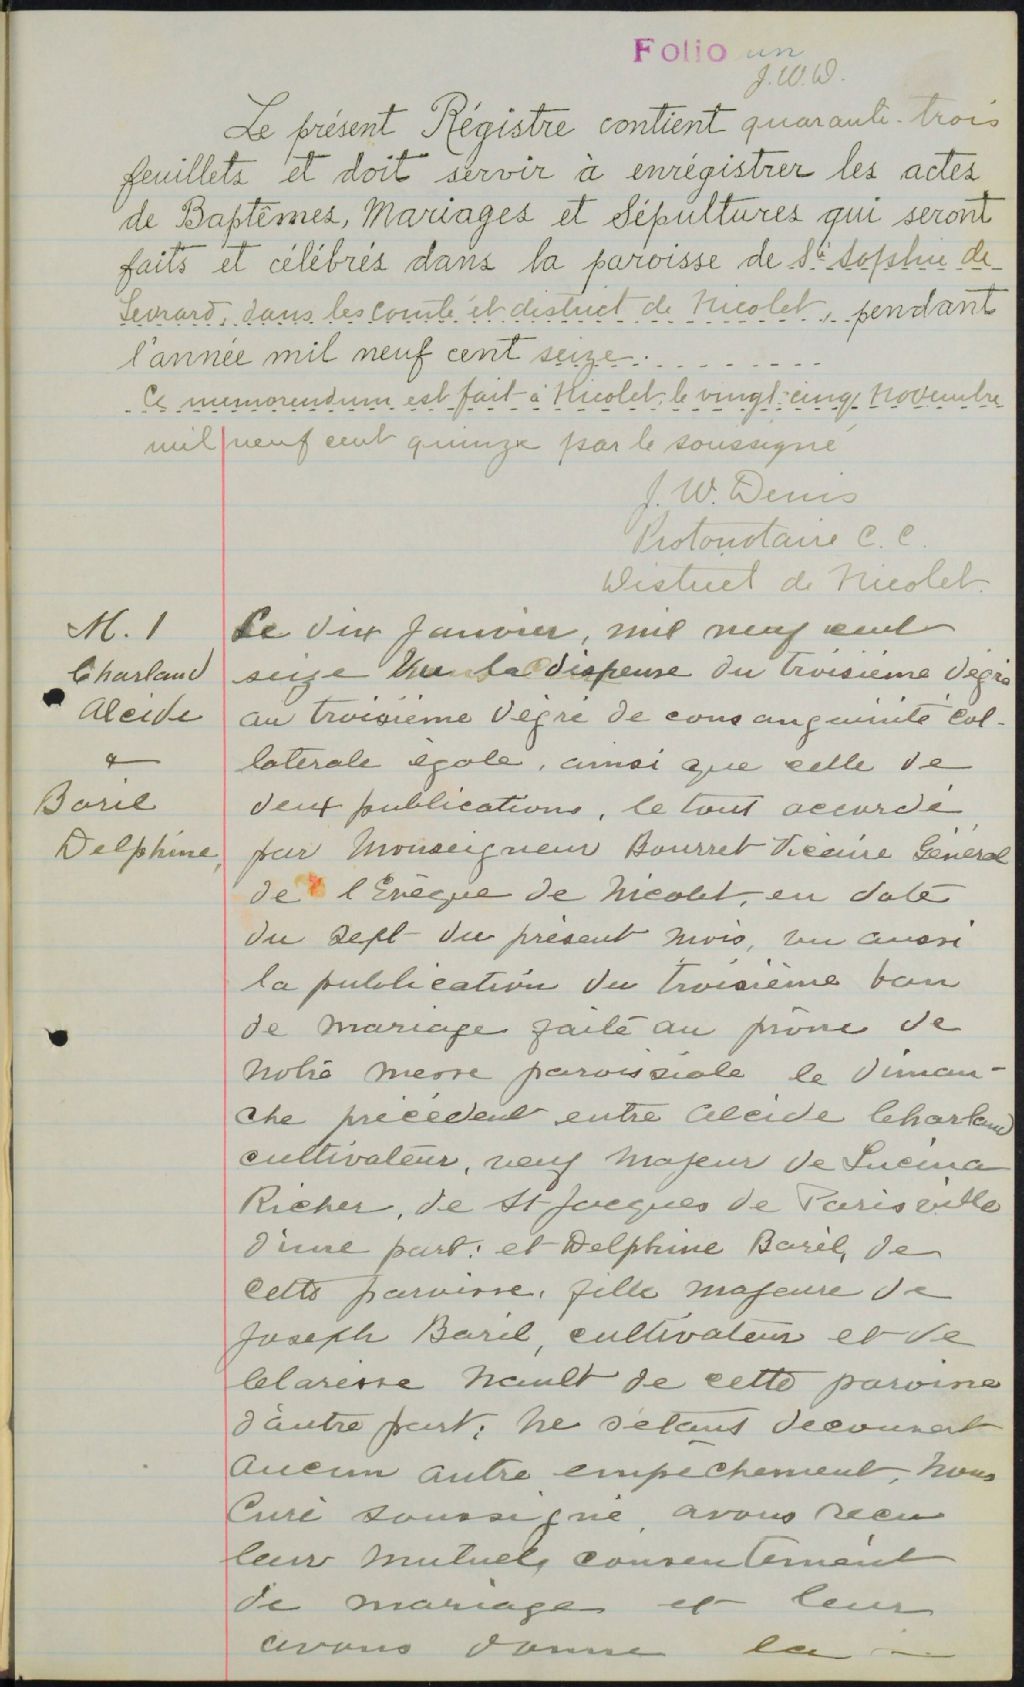 Folio un
J.W.D.
Le présent Régistre contient quarante-trois
feuillets et doit servir à enrégistrer les actes
de Baptêmes, Mariages et Sépultures qui seront
faits et célébrés dans la paroisse de Ste Sophie de
Levrard, dans les comté et district de Nicolet, pendant
l'année mil neuf cent seize.
Ce memorendum est fait à Nicolet, le vingt-cinq Novembre
mil neuf cent quinze par le soussigné
J. W. Denis
Protonotaire C. C.
District de Nicolet.
M. 1
Charland
Alcide
&
Baril
Delphine,
Le dix Janvier, mil neuf cent
seize Vu la dispense du troisième dégré
au troisième dégré de consanguinité col-
laterale égale, ainsi que celle de
deux publications, le tout accordé
par Monseigneur Bourret Vicaire Général
de l'Evêque de Nicolet, en date
du sept du présent mois, vu aussi
la publication du troisième ban
de mariage faite au prône de
notre messe paroissiale le diman-
che précédent entre Alcide Charland
cultivateur, veuf majeur de Lucina
Richer, de St Jacques de Parisville
d'une part; et Delphine Baril, de
cette paroisse, fille majeure de
Joseph Baril, cultivateur et de
Clarisse Nault de cette paroisse
d'autre part; Ne s'étant decouvert
aucun autre empêchement, Nous
Curé soussigné, avons recu
leur mutuel consentement
de mariage et leur
avons donné la